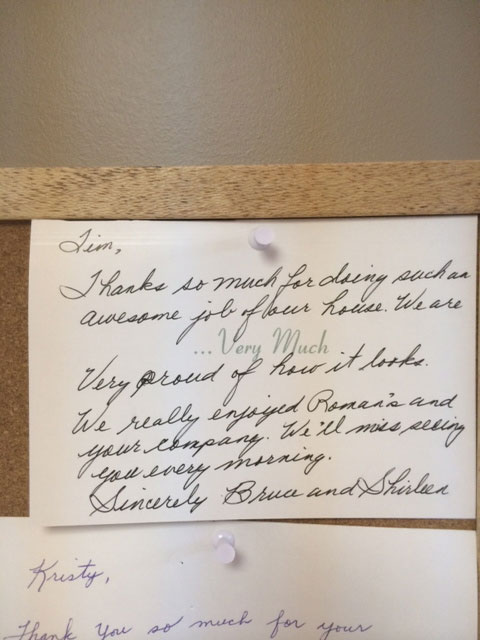 Tim,
Thanks so much for doing such an
awesome job of our house. We are
...Very Much
Very proud of how it looks.
We really enjoyed Roman's and
your company. We'll miss seeing
you every morning.
Sincerely Bruce and Shirleen
Kristy,
Thank You so much for your